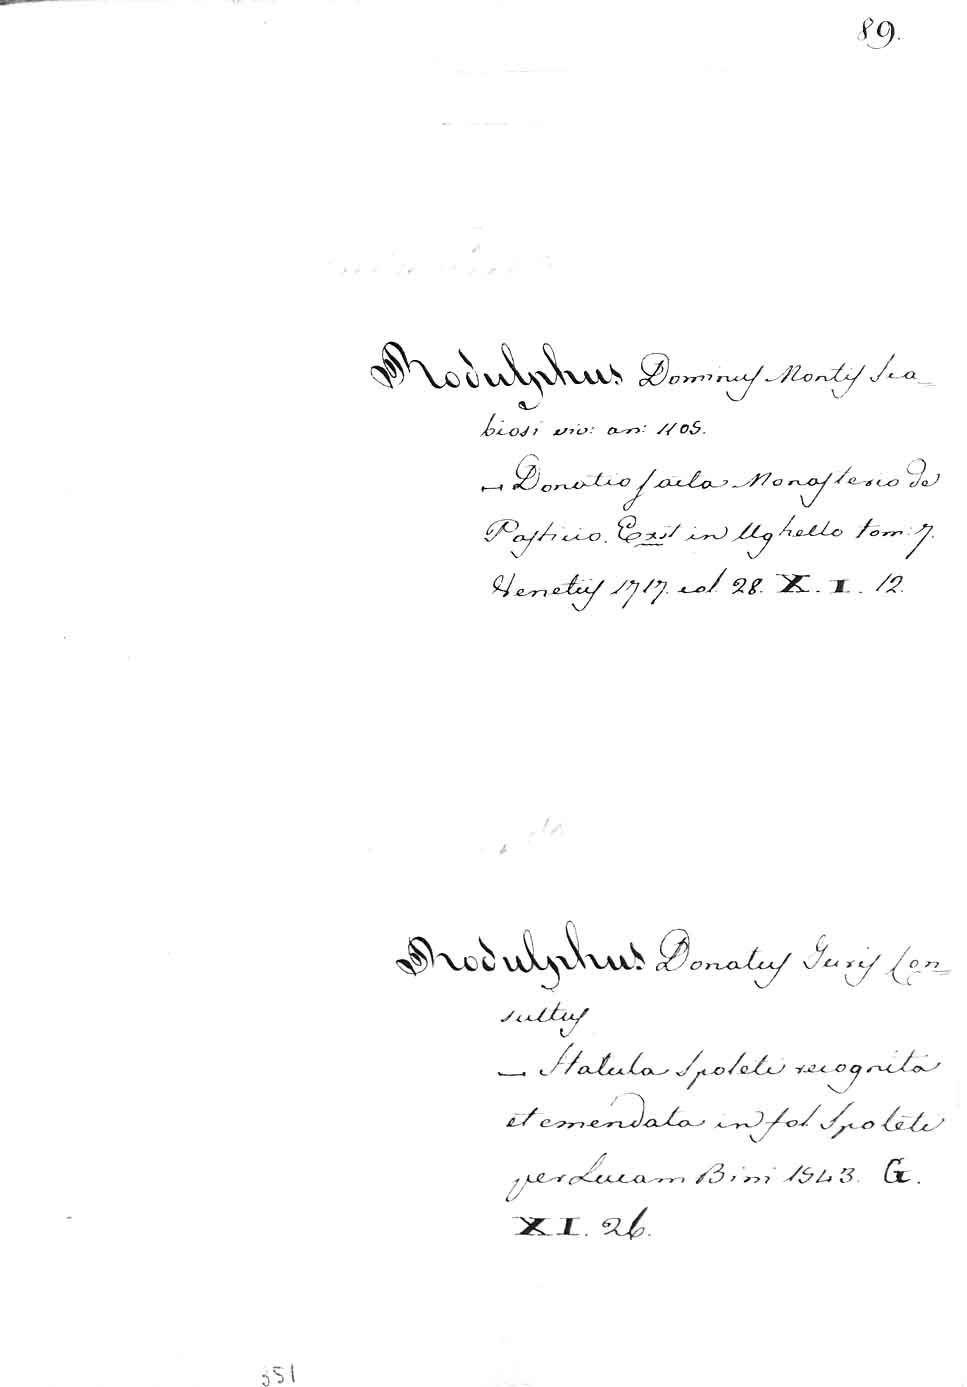 89.
Rodulphus Dominus Montis Sca=
biosi viv: an: 1105.
— Donatio facta Monasterio de
Pasticio. Exst in Ughello tom: 7.
Venetiis 1717. col. 28. X. I. 12.
Rodulphus Donatus Juris Con=
sultus
— Statuta Spoleti recognita
et emendata in fol Spoleti
per Lucam Bini 1543. G.
XI. 26.
351